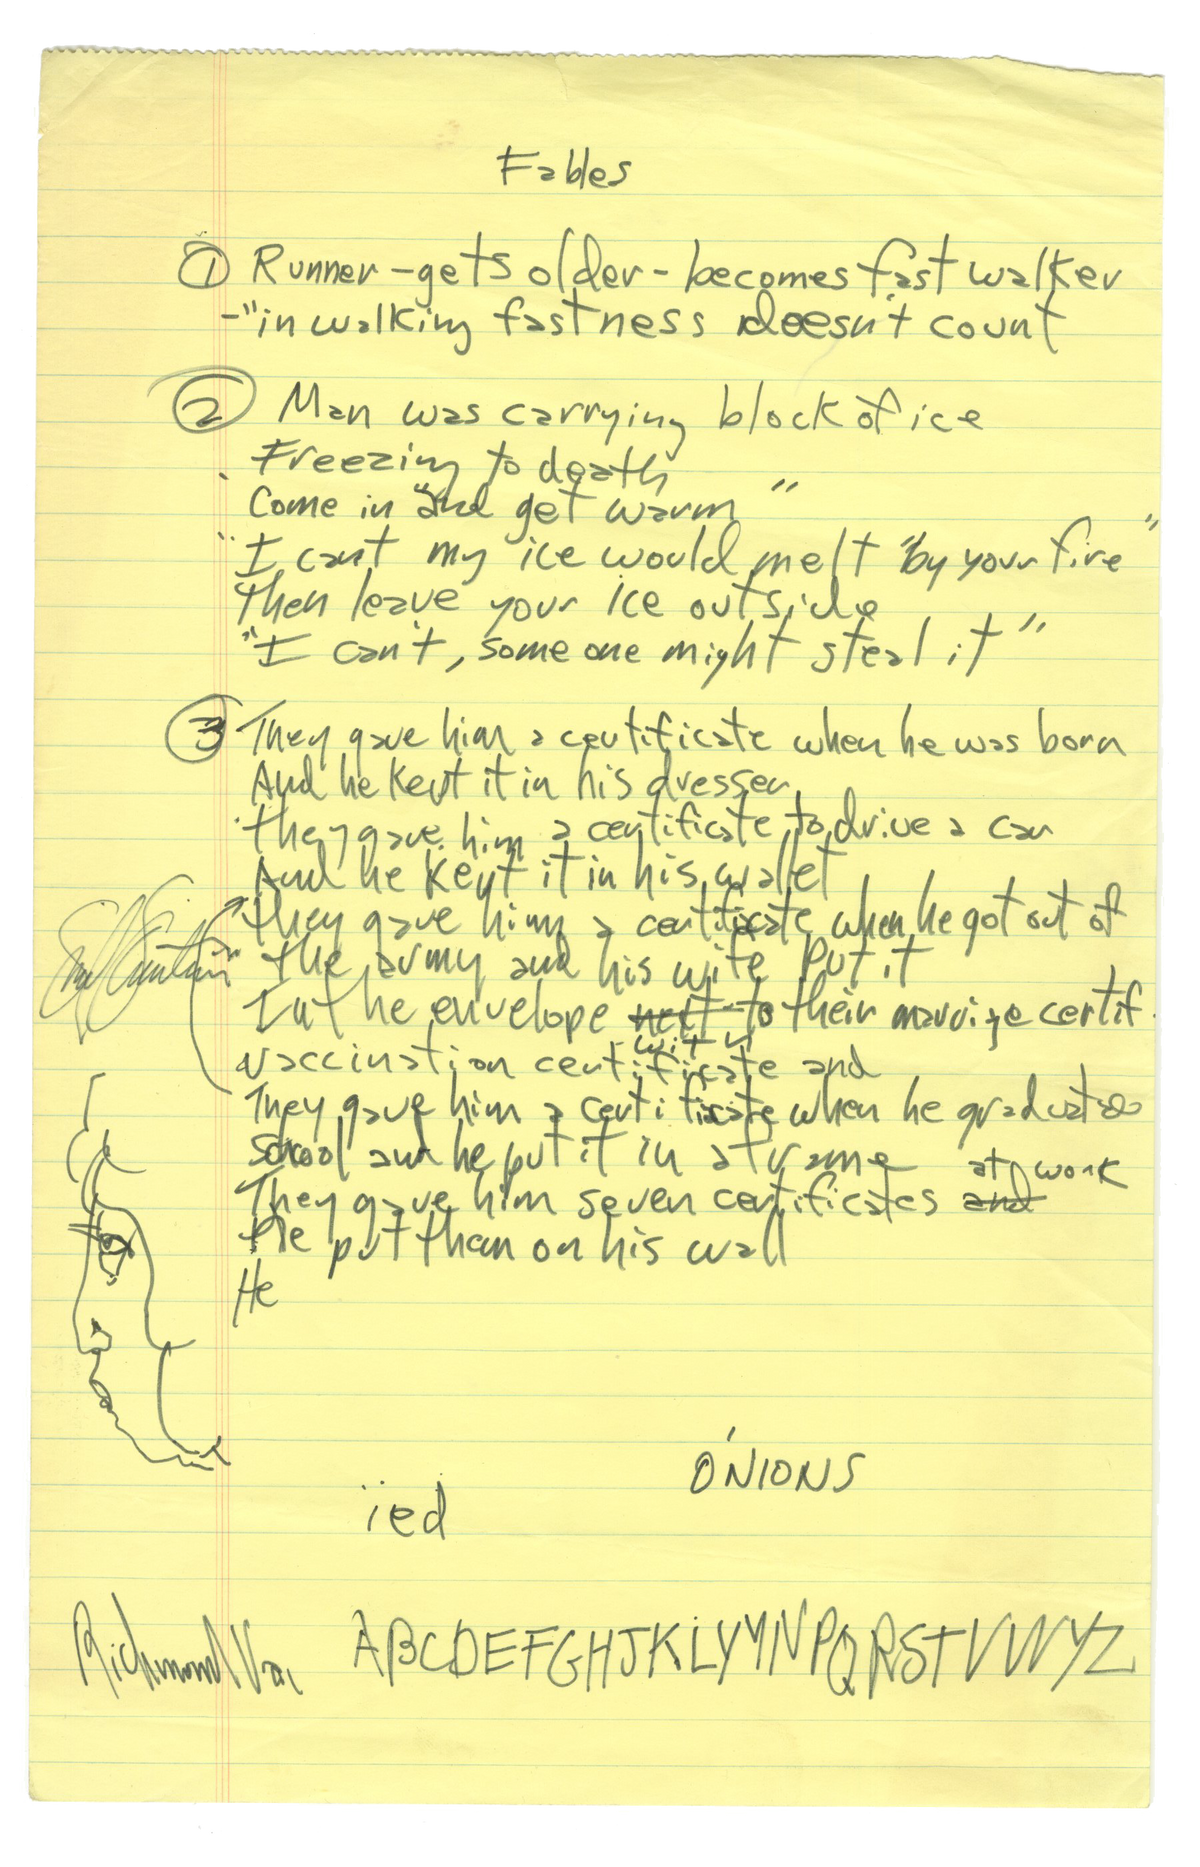 Fables
① Runner - gets older - becomes fast walker
- "in walking fastness doesn't count
② Man was carrying block of ice
Freezing to death
Come in "and get warm"
"I can't my ice would melt by your fire"
Then leave your ice outside
"I can't, some one might steal it"
③ They gave him a certificate when he was born
And he kept it in his dresser
They gave him a certificate to drive a car
And he kept it in his wallet
They gave him a certificate when he got out of
the army and his wife put it
In the envelope next to their marrige certif.
with
vaccination certificate and
They gave him a certificate when he graduates
school and he put it in a frame
at work
They gave him seven certificates and
He put than on his wall
He
ONIONS
ied
Richmond Va.
ABCDEFGHJKLYMNPQRSTVWYZ